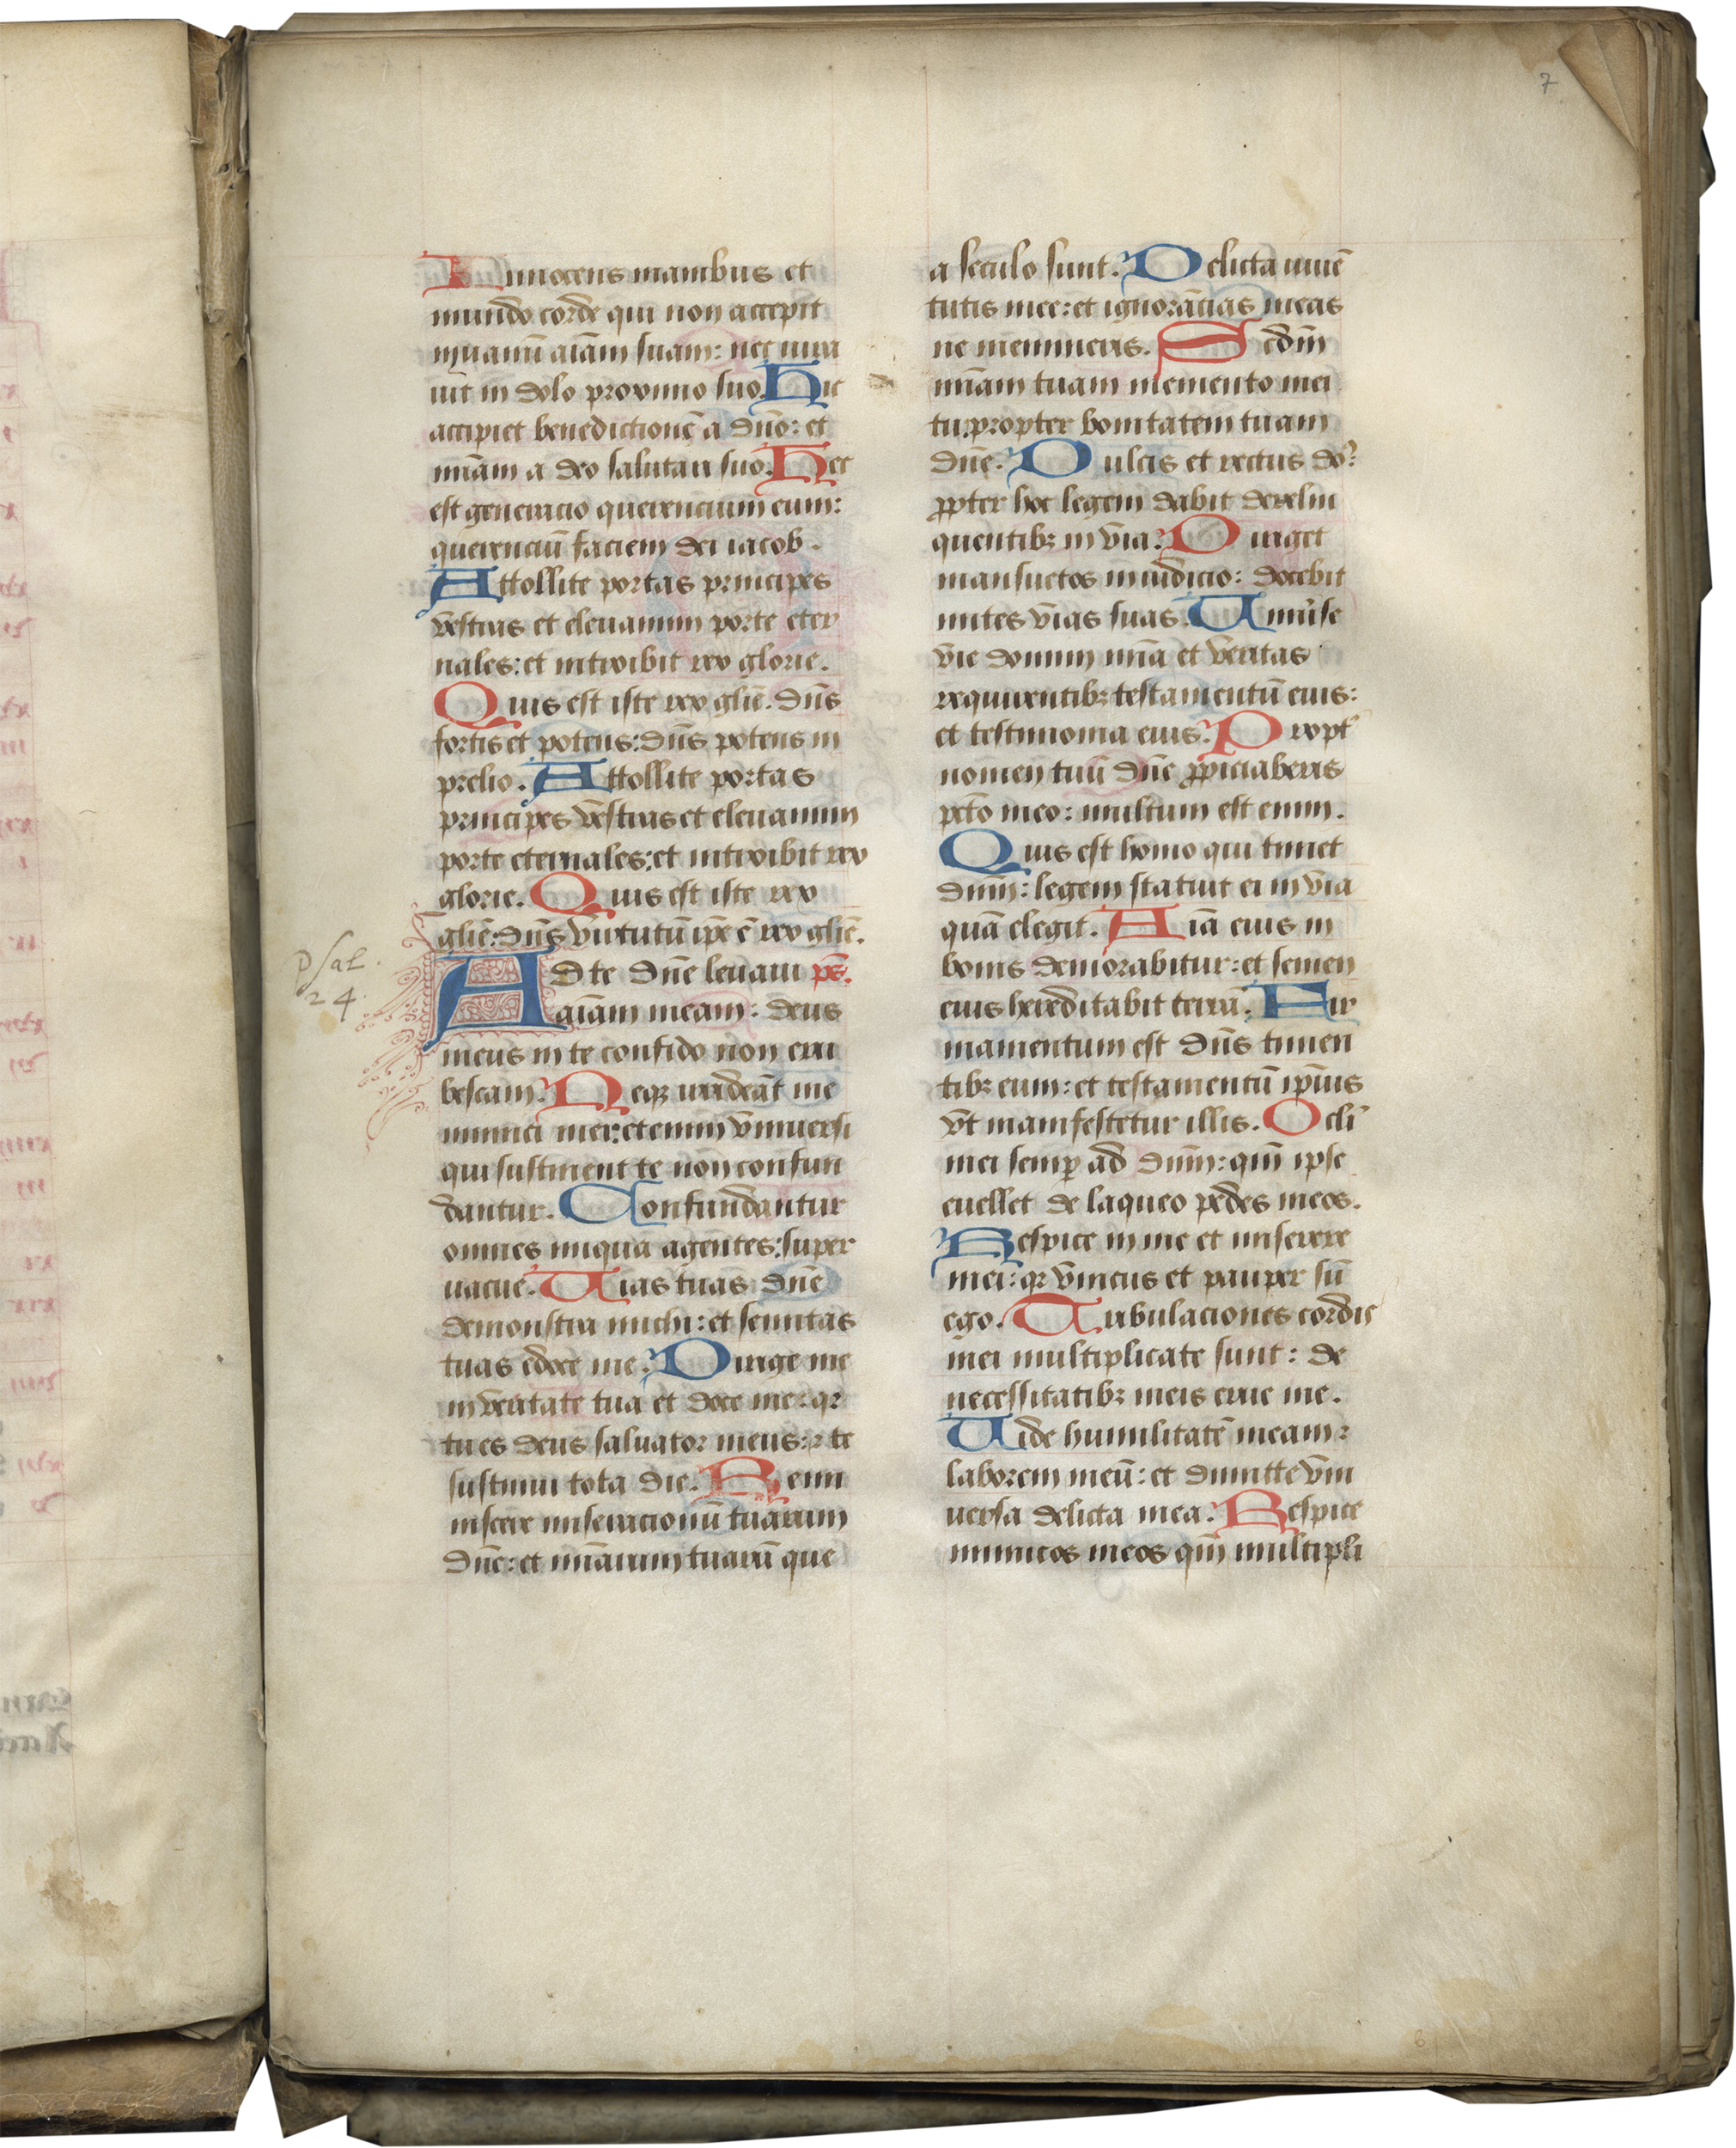 7
Innocens manibus et
mundo corde qui non accepit
in uanū aīam suam: nec iura
uit in dolo proximo suo. Hic
accipiet benedictionē a dn̄o: et
mīam a deo salutari suo. Hec
est generacio querencium eum:
querenciū faciem dei iacob.
Attollite portas principes
vestras et eleuamini porte eter
nales: et introibit rex glorie.
Quis est iste rex glīe. dn̄s
fortis et potens: dn̄s potens in
prelio. Attollite portas
principes vestras et eleuamini
porte eternales: et introibit rex
glorie. Quis est iste rex
glīe: dn̄s virtutū ip̄e ē rex glīe.
Psal.
24
Ad te dn̄e leuaui pō.
aīam meam: deus
meus in te confido non eru
bescam. Neqꝫ irrideāt me
inimici mei: etenim vniuersi
qui sustinent te non confun
dantur. Confundantur
omnes iniqua agentes: super
uacue. Uias tuas dn̄e
demonstra michi: et semitas
tuas edoce me. Dirige me
in veritate tua et doce me: qr
tu es deus saluator meus: ⁊ te
sustinui tota die. Remi
niscere miseracionū tuarum
dn̄e: et mīarum tuarū que
a seculo sunt. Delicta iuuē
tutis mee: et ignorācias meas
ne memineris. Scdm̄
mīam tuam memento mei
tu: propter bonitatem tuam
dn̄e. Dulcis et rectus do᷑:
ꝓpter hoc legem dabit derelin
quentibꝫ in via. Diriget
mansuetos in iudicio: docebit
mites vias suas. Uniu᷑se
vie domini mīa et veritas
requirentibꝫ testamentū eius:
et testimonia eius. Propt᷑
nomen tuū dn̄e ꝓpiciaberis
pctō meo: multum est enim.
Quis est homo qui timet
dn̄m: legem statuit ei in via
quā elegit. Aīa eius in
bonis demorabitur: et semen
eius hereditabit terrā. Fir
mamentum est dn̄s timen
tibꝫ eum: et testamentū ipīus
vt manifestetur illis. Ocli᷑
mei semꝑ ad dn̄m: qm̄ ipse
euellet de laqueo pedes meos.
Respice in me et miserere
mei: qr vnicus et pauper sū
ego. Tribulaciones cordis
mei multiplicate sunt: de
necessitatibꝫ meis erue me.
Uide humilitatē meam ⁊
laborem meū: et dimitte vni
uersa delicta mea. Respice
inimicos meos qm̄ multipli
6